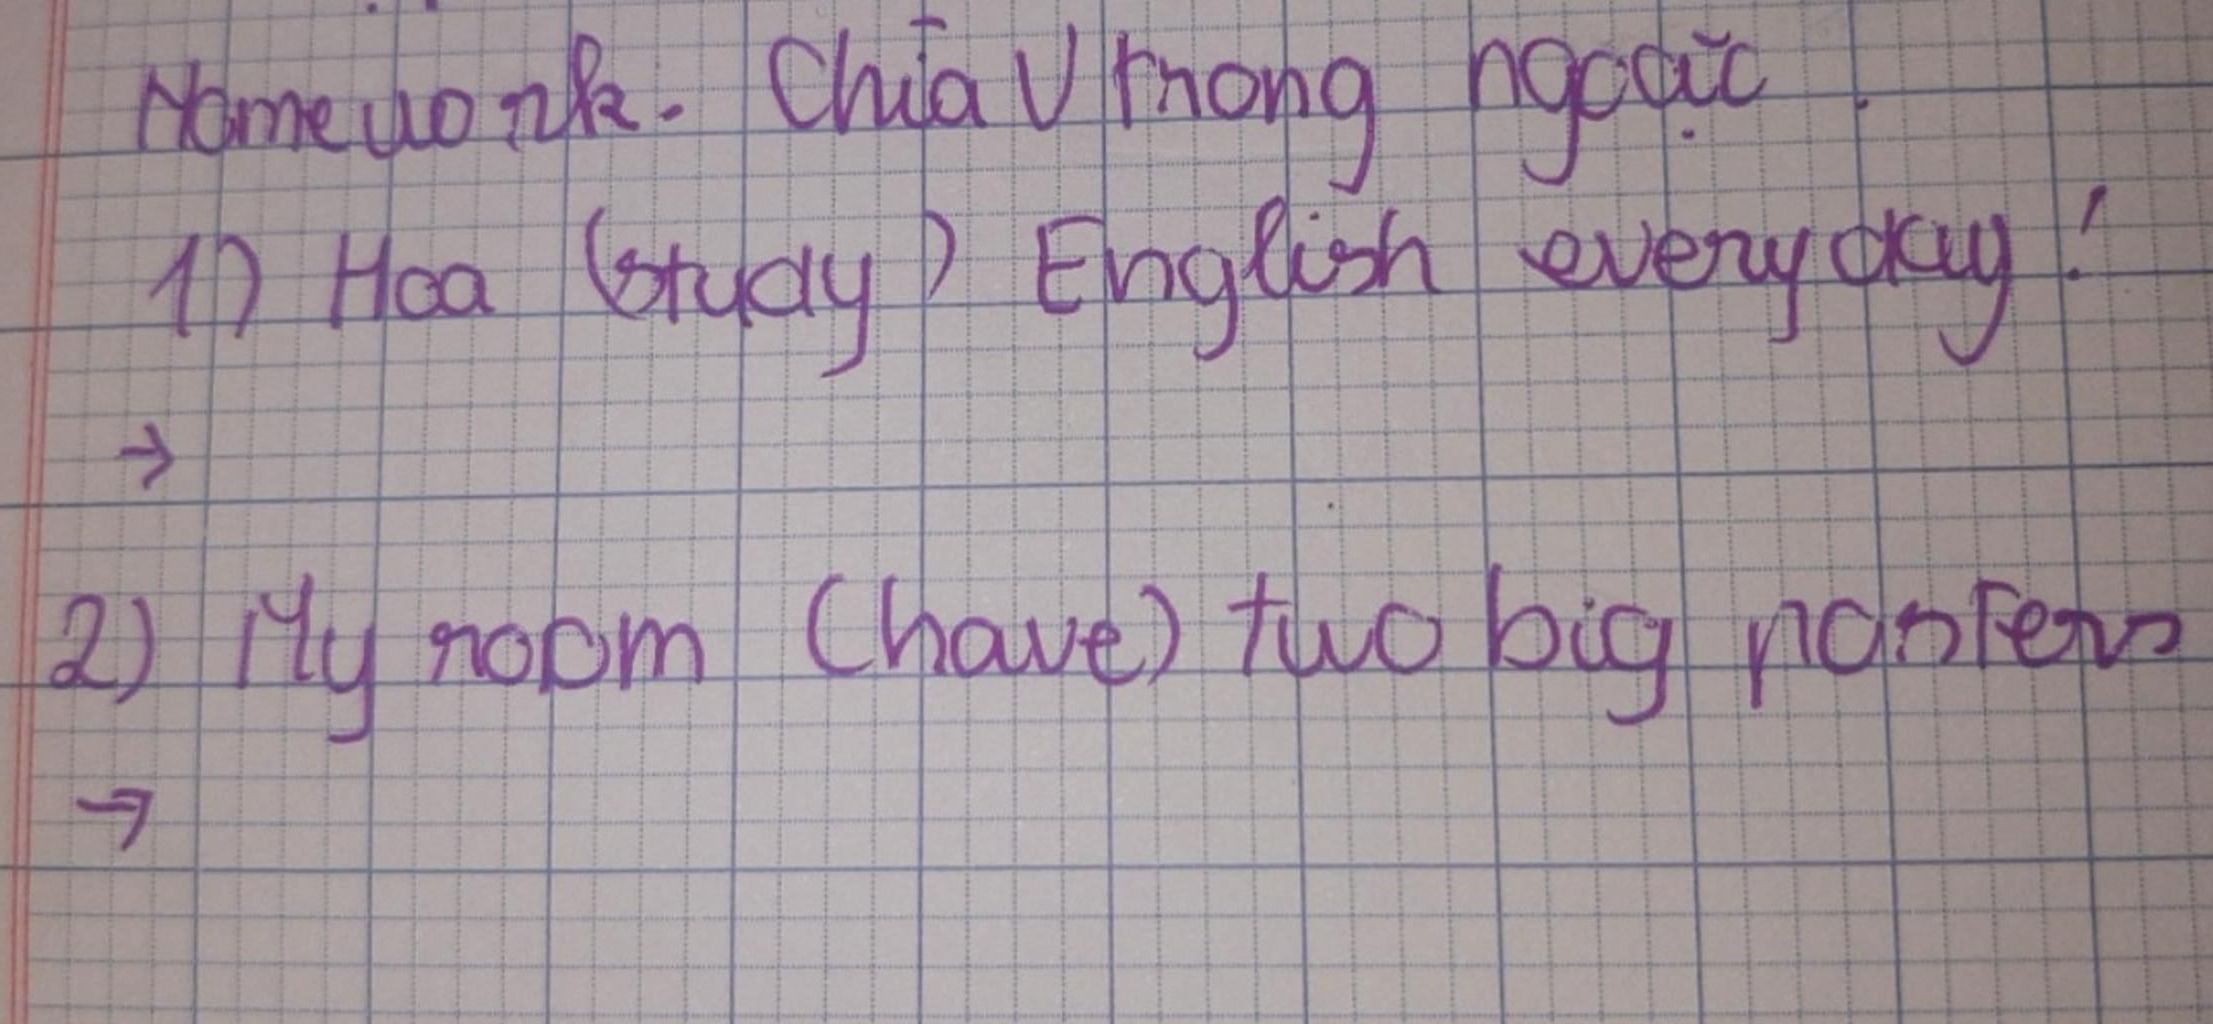 Homework. Chia V trong ngoặc.
1) Hoa (study) English everyday!
→
2) My room (have) two big posters
→